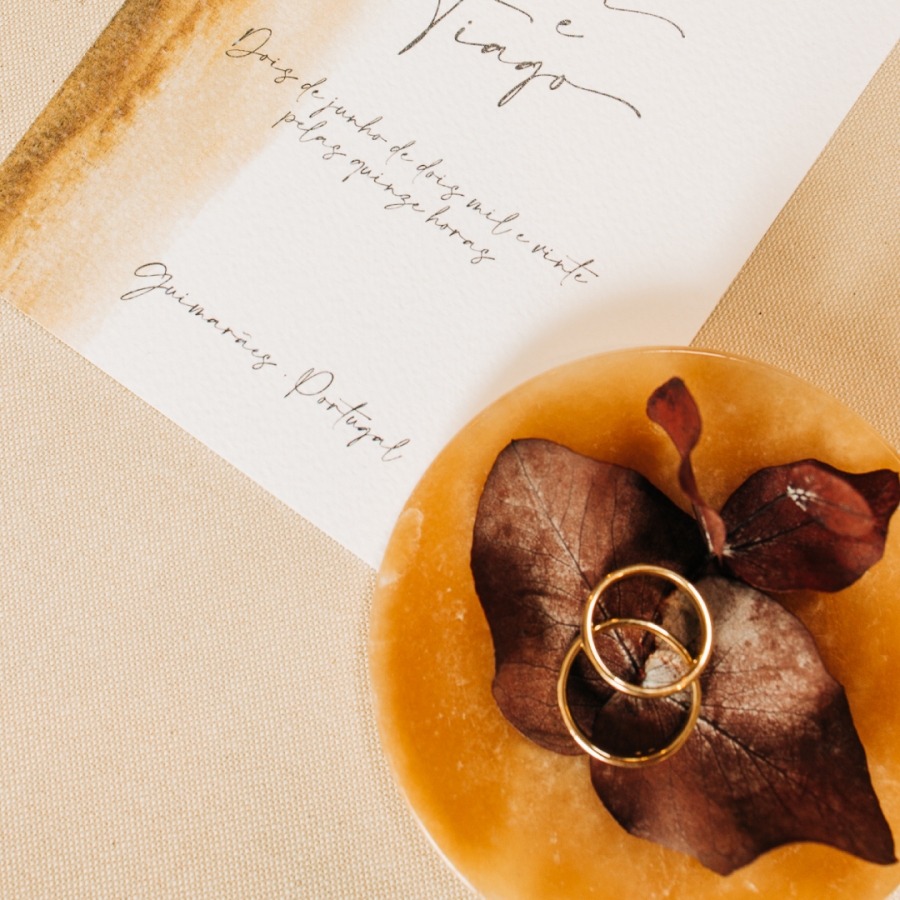 e
Tiago
Dois de junho de dois mil e vinte
pelas quinze horas
Guimarães . Portugal